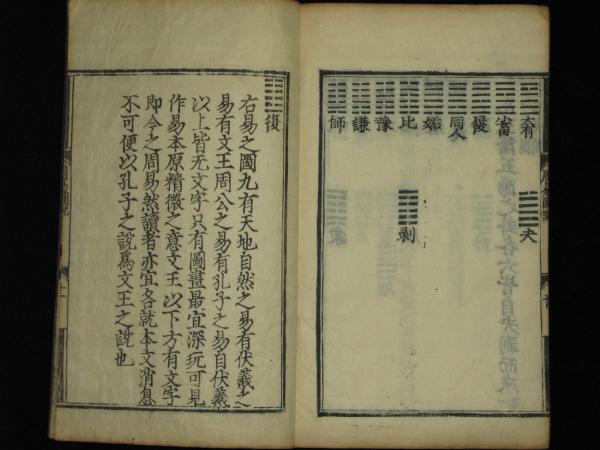 大有
小畜
履
同人
姤
比
豫
謙
師
夬
剥
復
右易之圖九有天地自然之易有伏羲之
易有文王周公之易有孔子之易自伏羲
以上皆无文字只有圖畫最宜深玩可見
作易本原精微之意文王以下方有文字
即今之周易然讀者亦宜各就本文消息
不可便以孔子之説爲文王之説也